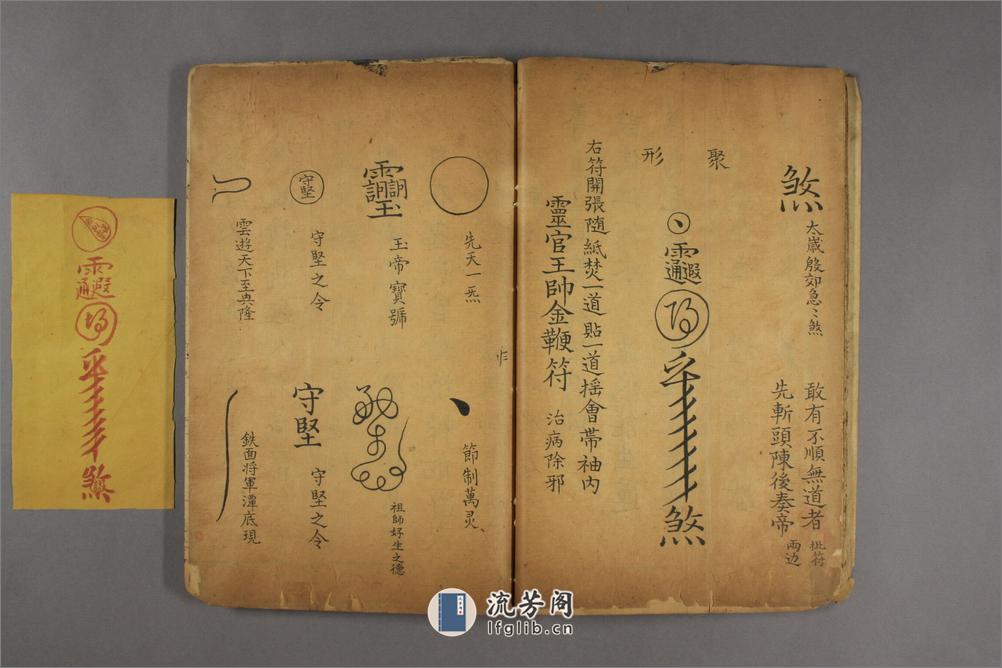 煞
太歲殷郊急〻煞
敢有不順無道者
先斬頭陳後奏帝
批符
兩边
聚
形
煞
右符開張隨紙焚一道貼一道搖會帶袖內
靈官王帥金鞭符
治病除邪
先天一炁
節制萬灵、
玉帝寶號
祖師好生之德
守堅
守堅之令
守堅
守堅之令
雲遊天下至興隆
鉄面將軍潭底現
煞
流芳阁
lfglib.cn